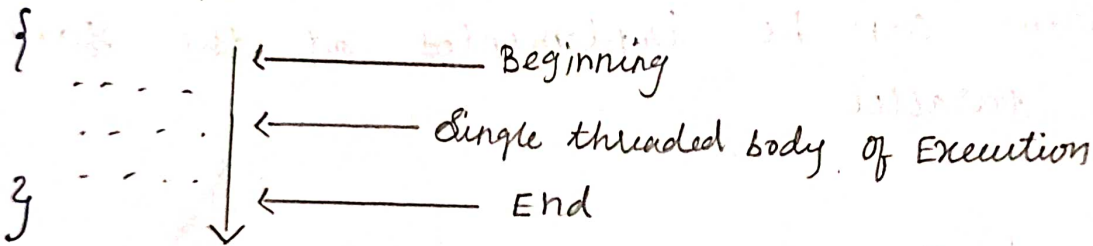 {
- - - - Beginning
- - - - Single threaded body of Execution
- - - -
} End